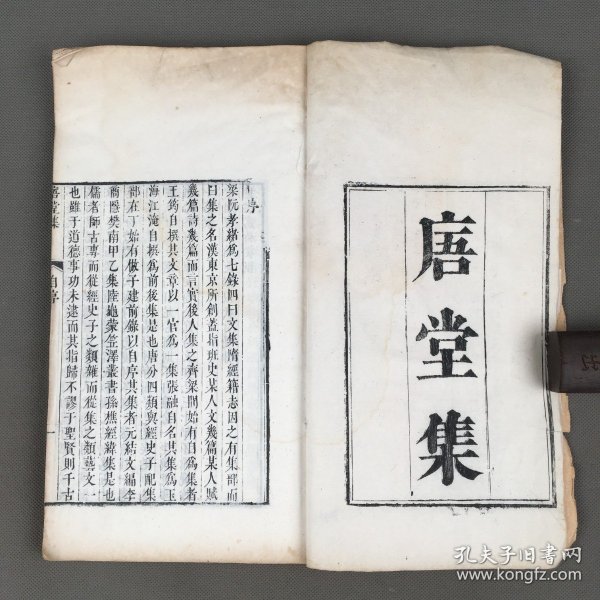 唐堂集
自序
梁阮孝緒為七錄四曰文集隋經籍志因之有集部而
曰集之名漢東京所創蓋指班史某人文幾篇某人賦
幾篇詩幾篇而言實後人集之齊梁間始有自為集者
王筠自撰其文章以一官為一集張融自名其集為玉
海江淹自撰為前後集是也唐分四類與經史子配集
部在丁始有倣子建前錄以自序其集者元結文編李
商隱樊南甲乙集陸龜蒙笠澤叢書孫樵經緯集是也
儒者師古專而從經史子之類雜而從集之類藝文一
也雖于道德事功未逮而其指歸不謬于聖賢則千古
唐堂集 自序 一
孔夫子旧书网
www.kongfz.com